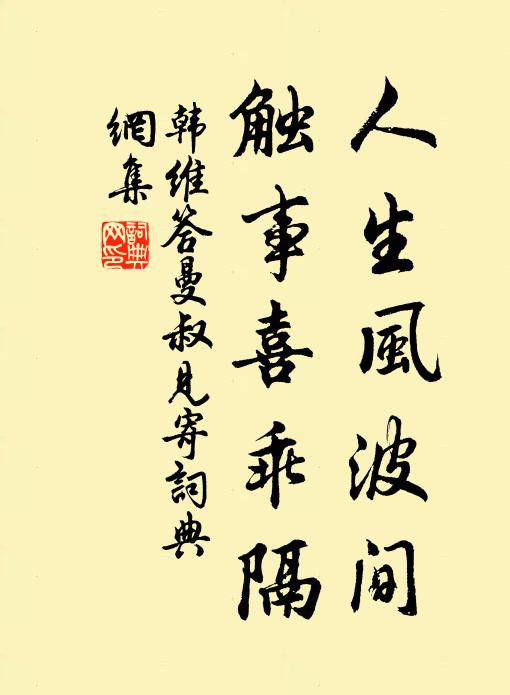 人生風波间
触事喜乖隔
韩维答曼叔见寄詞典
網集
詞典网印